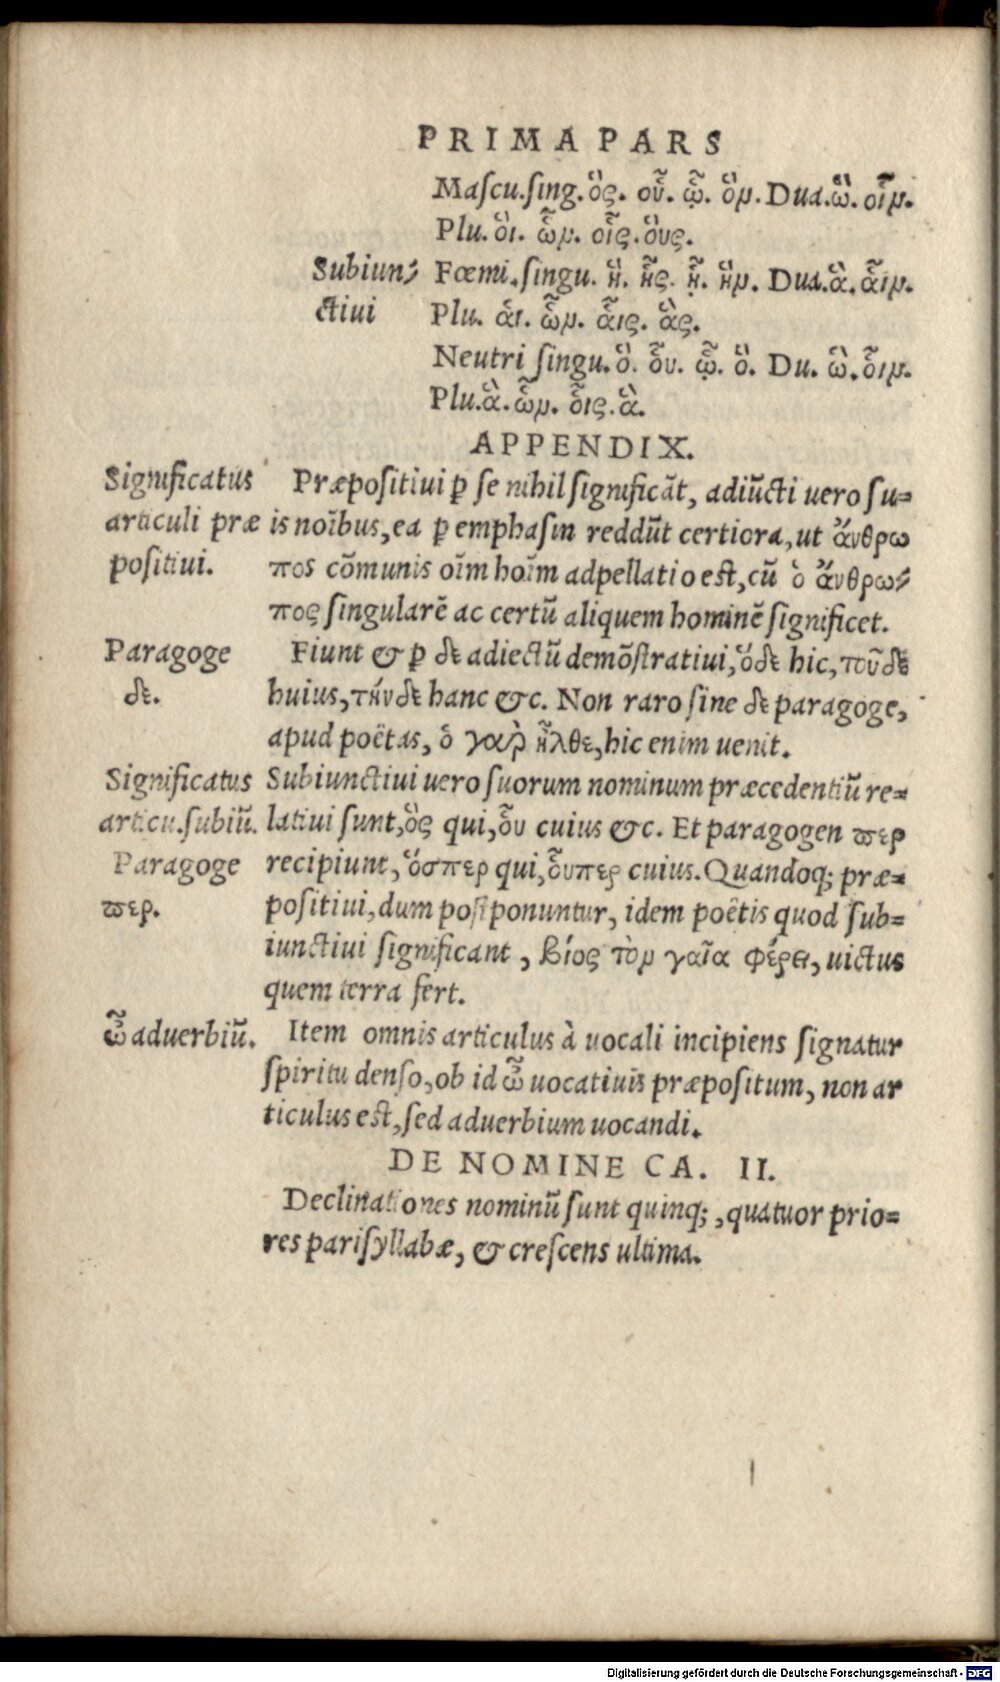 PRIMA PARS
Mascu.sing.ὃς. οὗ. ᾧ. ὃν. Dua.ὣ. οἷν.
Plu.ὃι. ὧν. οἷς.ὃυς.
Subiun⸗ Fœmi.singu. ἣ. ἧς. ᾗ. ἣν. Dua.ἃ.ἇιν.
ctiui Plu. ἁι. ὧν. ἇις. ἃς.
Neutri singu.ὃ. ὗυ. ᾧ. ὃ. Du. ὣ.ὗιν.
Plu.ἃ.ὧν. ὗις.ἃ.
APPENDIX.
Significatus
articuli præ
positiui.
Præpositiui ꝑ se nihil significãt, adiũcti uero su⸗
is noĩbus, ea ꝑ emphasin reddũt certiora, ut ἄνθρω
πος cõmunis oĩm hoĩm adpellatio est, cũ ὁ ἄνθρω⸗
πος singularẽ ac certũ aliquem hominẽ significet.
Paragoge
δε.
Fiunt & ꝑ δε adiectũ demõstratiui, ὅδε hic, τοῦδε
huius, τήνδε hanc &c. Non raro sine δε paragoge,
apud poëtas, ὁ γαρ̀ ἦλθε, hic enim uenit.
Significatus
articu.subiũ.
Paragoge
περ.
Subiunctiui uero suorum nominum præcedentiũ re⸗
latiui sunt, ὃς qui, ὗυ cuius &c. Et paragogen περ
recipiunt, ὅσπερ qui, ὗυπερ cuius. Quandoq; præ⸗
positiui, dum postponuntur, idem poëtis quod sub⸗
iunctiui significant, βίος τὸν γαῖα φέρει, uictus
quem terra fert.
ὦ aduerbiũ.
Item omnis articulus à uocali incipiens signatur
spiritu denso, ob id ὦ uocatiuis præpositum, non ar
ticulus est, sed aduerbium uocandi.
DE NOMINE CA. II.
Declinationes nominũ sunt quinq;, quatuor prio⸗
res parisyllabæ, & crescens ultima.
Digitalisierung gefördert durch die Deutsche Forschungsgemeinschaft - DFG